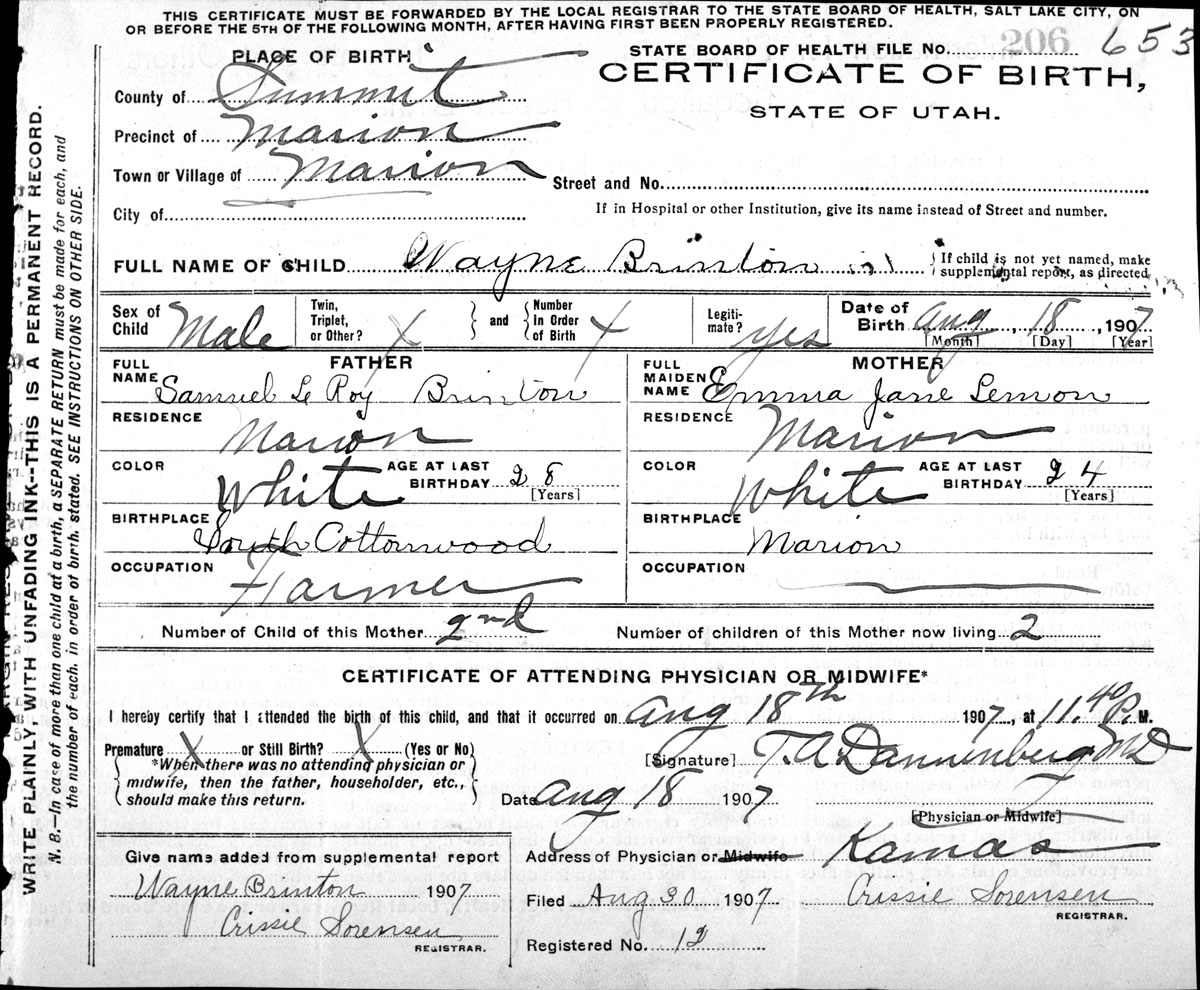 THIS CERTIFICATE MUST BE FORWARDED BY THE LOCAL REGISTRAR TO THE STATE BOARD OF HEALTH, SALT LAKE CITY, ON
OR BEFORE THE 5TH OF THE FOLLOWING MONTH, AFTER HAVING FIRST BEEN PROPERLY REGISTERED.
PLACE OF BIRTH
STATE BOARD OF HEALTH FILE NO. 206 653
County of Summit
CERTIFICATE OF BIRTH,
STATE OF UTAH.
Precinct of Marion
Town or Village of Marion
Street and No.
City of
If in Hospital or other Institution, give its name instead of Street and number.
FULL NAME OF CHILD Wayne Brinton
If child is not yet named, make
supplemental report, as directed
Sex of Child Male
Twin, Triplet, or Other? X
and
Number In Order of Birth X
Legiti-mate? yes
Date of Birth Aug 18, 1907
[Month] [Day] [Year]
FATHER
MOTHER
FULL NAME Samuel Le Roy Brinton
FULL MAIDEN NAME Emma Jane Lemon
RESIDENCE Marion
RESIDENCE Marion
COLOR White AGE AT LAST BIRTHDAY 28 [Years]
COLOR White AGE AT LAST BIRTHDAY 24 [Years]
BIRTHPLACE South Cottonwood
BIRTHPLACE Marion
OCCUPATION Farmer
OCCUPATION
Number of Child of this Mother 2nd
Number of children of this Mother now living 2
CERTIFICATE OF ATTENDING PHYSICIAN OR MIDWIFE*
I hereby certify that I attended the birth of this child, and that it occurred on Aug 18th 1907, at 11.40 P. M.
Premature X or Still Birth? X (Yes or No)
*When there was no attending physician or
midwife, then the father, householder, etc.,
should make this return.
[Signature] T.A. Dannenberg MD
Date Aug 18 1907
[Physician or Midwife]
Give name added from supplemental report
Wayne Brinton 1907
Crissie Sorensen
REGISTRAR.
Address of Physician or Midwife Kamas
Filed Aug 30 1907 Crissie Sorensen
REGISTRAR.
Registered No. 12
WRITE PLAINLY, WITH UNFADING INK--THIS IS A PERMANENT RECORD.
N. B.--In case of more than one child at a birth, a SEPARATE RETURN must be made for each, and
the number of each, in order of birth, stated. SEE INSTRUCTIONS ON OTHER SIDE.